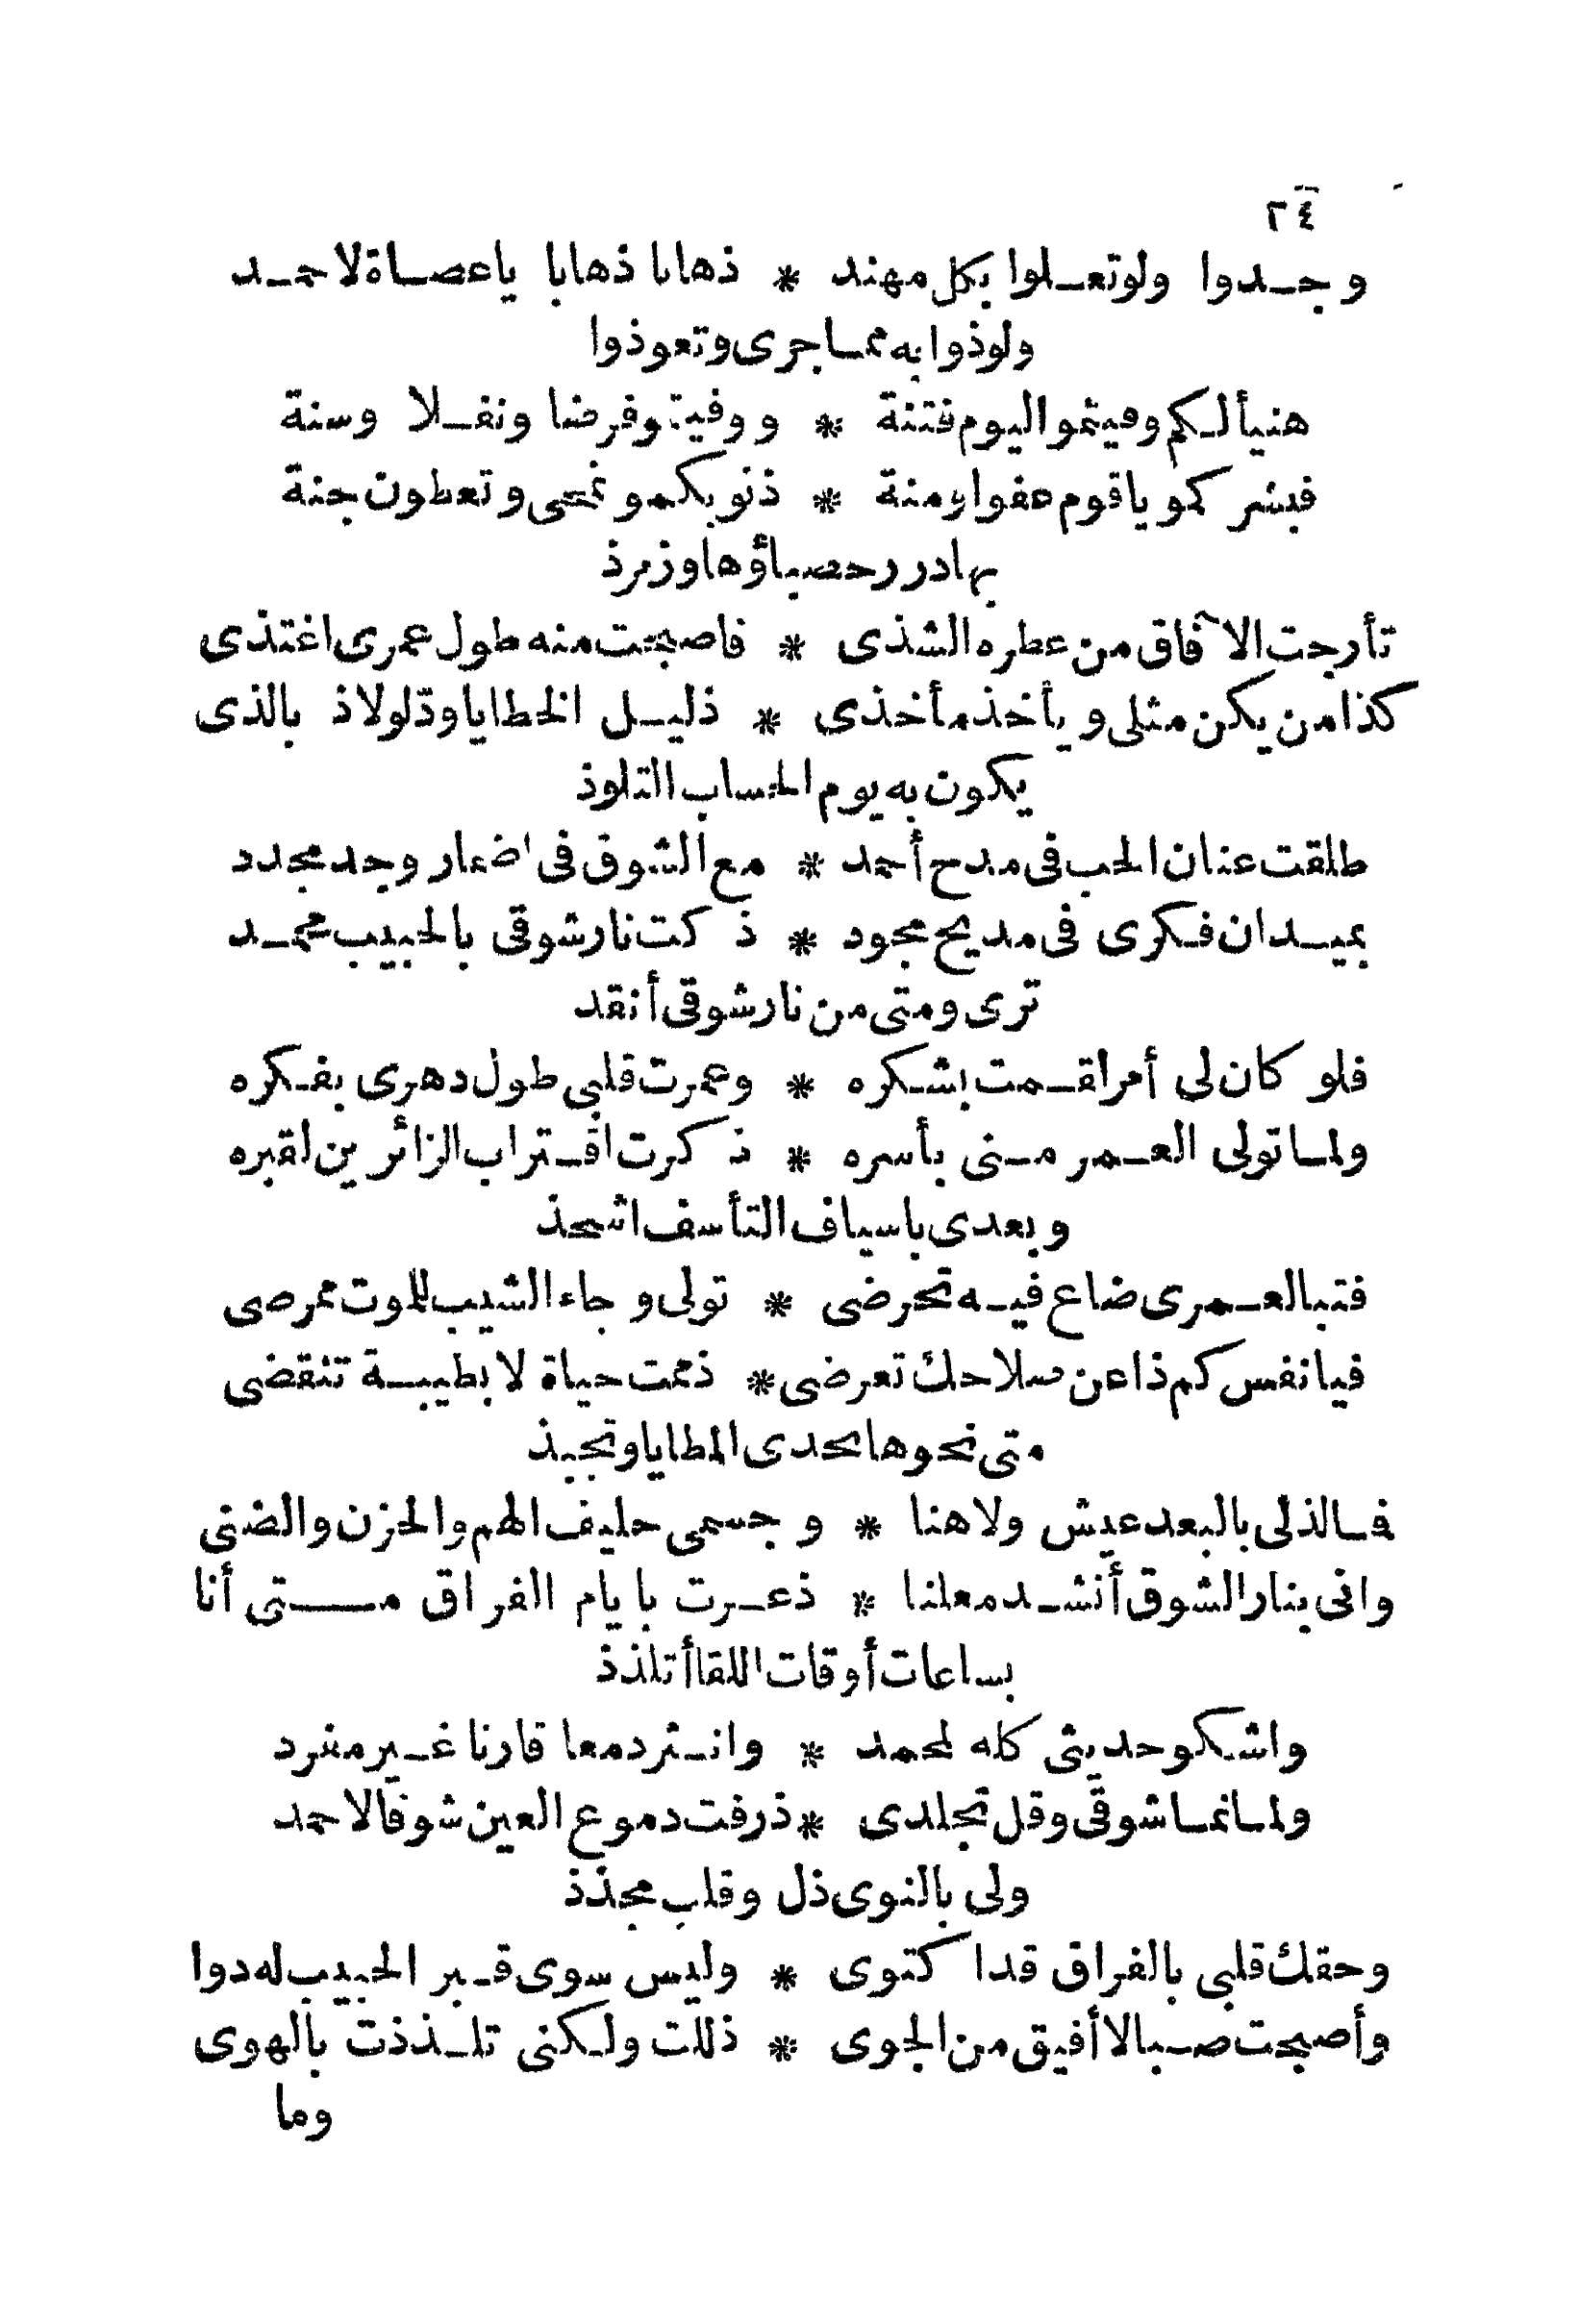 ٢٤
وجدوا ولو تعلوا بكل مهند * ذهابا ذهابا يا عصاة لاحمد
ولوذوا به مما جرى وتعوذوا
هنيأ لكم وفيتمو اليوم فتنة * ووفيتمو فرضا ونفلا وسنة
فبشركمو يا قوم عفوا ومنة * ذنوبكمو تمحى وتعطون جنة
بها درر حصباؤها وزمرذ
تأرجت الآفاق من عطره الشذى * فاصبحت منه طول عمرى اغتذى
كذا من يكن مثلى ويأخذ مأخذى * ذليل الخطايا ودّ لو لاذ بالذى
يكون به يوم الحساب التلوذ
طلقت عنان الحب فى مدح أحمد * مع الشوق فى اضمار وجد مجدد
بميدان فكرى فى مديح مجود * ذكت نار شوقى بالحبيب محمد
ترى ومتى من نار شوقى أنقد
فلو كان لى أمر اقمت بشكره * وعمرت قلبى طول دهرى بفكره
ولما تولى العمر منى بأسره * ذكرت اقتراب الزائرين لقبره
وبعدى باسياف التأسف اشحذ
فتبا لعمرى ضاع فيه تحرضى * تولى وجاء الشيب للموت ممرضى
فيا نفس كم ذا عن صلاحك تعرضى * ذممت حياة لا بطيبة تنقضى
متى نحوها تحدى المطايا وتجبذ
فما لذلى بالبعد عيش ولا هنا * وجسمى حليف الهم والحزن والضنى
وانى بنار الشوق أنشد معلنا * ذعرت بايام الفراق متى أنا
بساعات أوقات اللقا أتلذذ
واشكو حديثى كله لمحمد * وانثر دمعا قارنا غير مفرد
ولما نما شوقى وقل تجلدى * ذرفت دموع العين شوقا لاحمد
ولى بالنوى ذل وقلب مجذذ
وحقك قلبى بالفراق قد اكتوى * وليس سوى قبر الحبيب له دوا
وأصبحت صبا لا أفيق من الجوى * ذللت ولكنى تلذذت بالهوى
وما